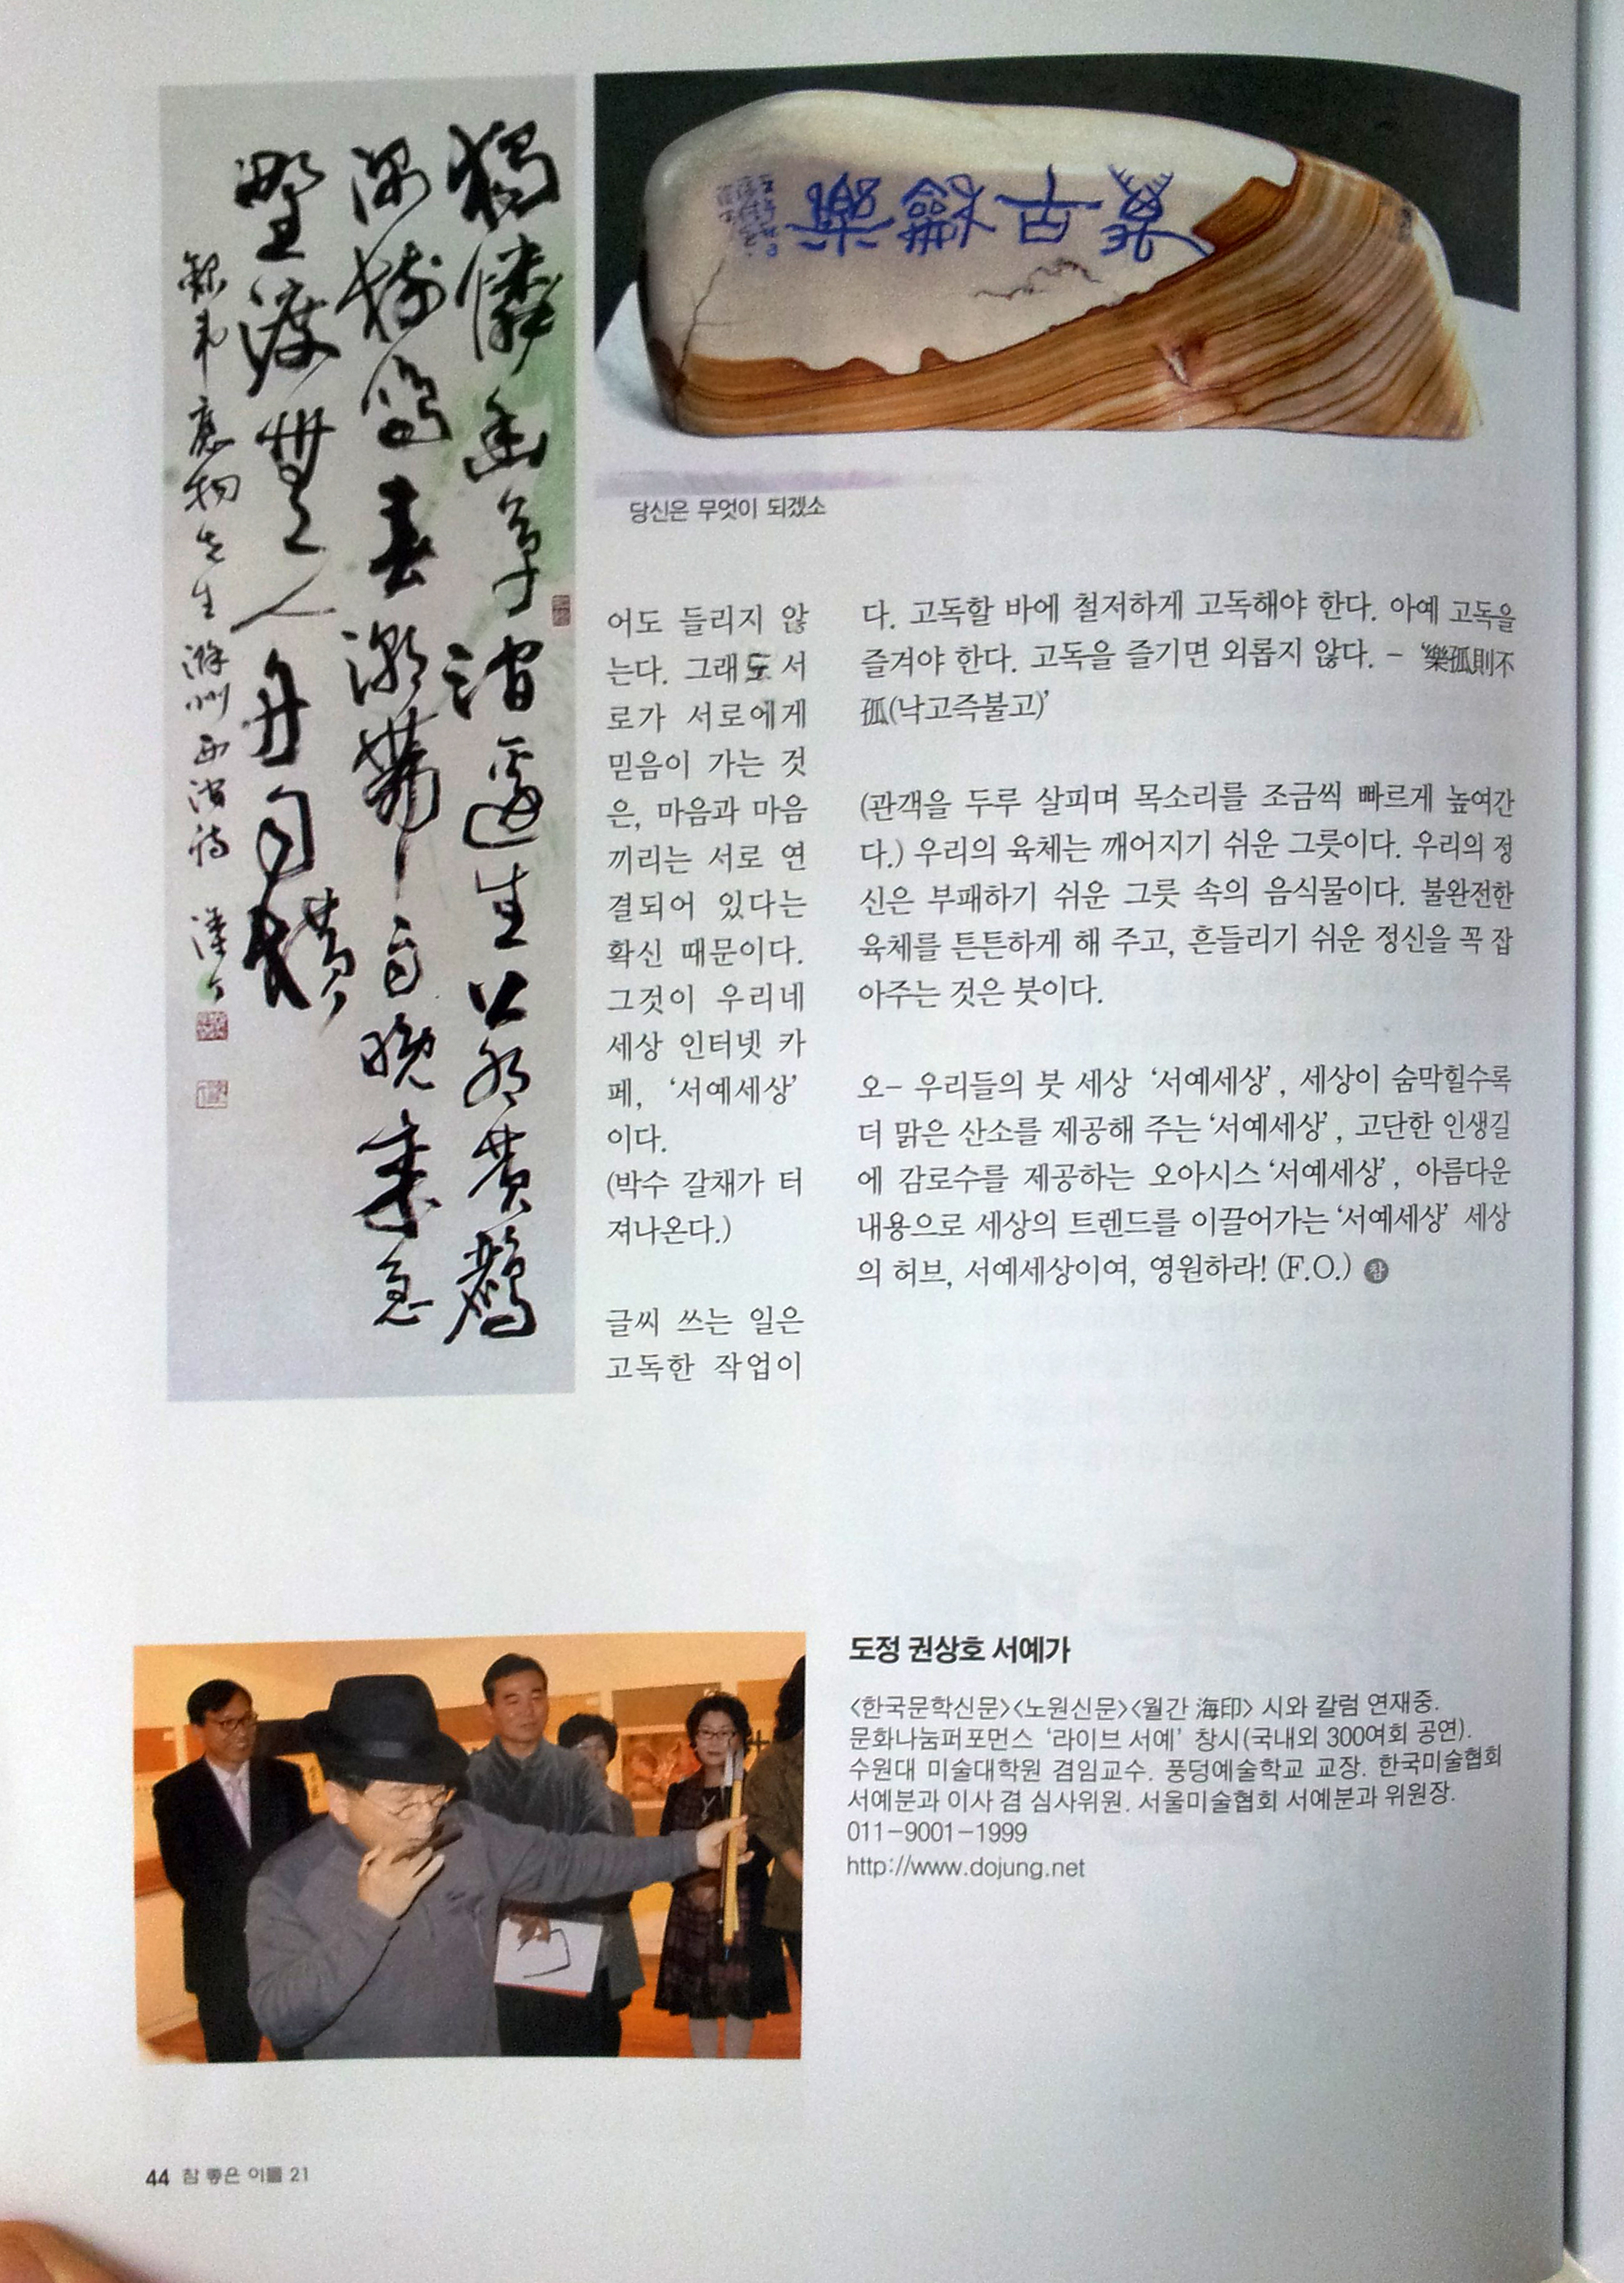 獨憐幽草澗邊生上有黃鸝
深樹鳴春潮帶雨晚來急
野渡無人舟自橫
韋應物先生滁州西澗詩
古龢樂
당신은 무엇이 되겠소
어도 들리지 않
는다. 그래도 서
로가 서로에게
믿음이 가는 것
은, 마음과 마음
끼리는 서로 연
결되어 있다는
확신 때문이다.
그것이 우리네
세상 인터넷 카
페, ‘서예세상’
이다.
(박수 갈채가 터
져나온다.)
글씨 쓰는 일은
고독한 작업이
다. 고독할 바에 철저하게 고독해야 한다. 아예 고독을
즐겨야 한다. 고독을 즐기면 외롭지 않다. – ‘樂孤則不
孤(낙고즉불고)’
(관객을 두루 살피며 목소리를 조금씩 빠르게 높여간
다.) 우리의 육체는 깨어지기 쉬운 그릇이다. 우리의 정
신은 부패하기 쉬운 그릇 속의 음식물이다. 불완전한
육체를 튼튼하게 해 주고, 흔들리기 쉬운 정신을 꼭 잡
아주는 것은 붓이다.
오– 우리들의 붓 세상 ‘서예세상’, 세상이 숨막힐수록
더 맑은 산소를 제공해 주는 ‘서예세상’, 고단한 인생길
에 감로수를 제공하는 오아시스 ‘서예세상’, 아름다운
내용으로 세상의 트렌드를 이끌어가는 ‘서예세상’ 세상
의 허브, 서예세상이여, 영원하라! (F.O.) 참
도정 권상호 서예가
<한국문학신문><노원신문><월간 海印> 시와 칼럼 연재중.
문화나눔퍼포먼스 ‘라이브 서예’ 창시(국내외 300여회 공연).
수원대 미술대학원 겸임교수. 풍덩예술학교 교장. 한국미술협회
서예분과 이사 겸 심사위원. 서울미술협회 서예분과 위원장.
011-9001-1999
http://www.dojung.net
44 참 좋은 이들 21